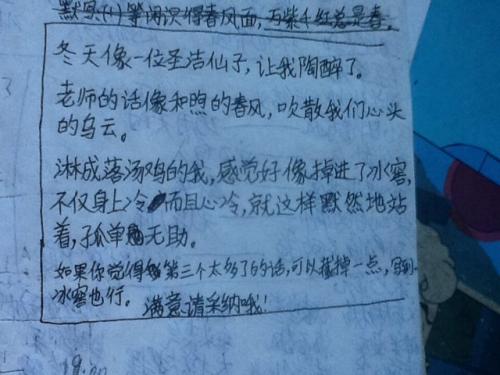 默写(1)等闲识得春风面,万紫千红总是春。
冬天像一位圣洁仙子,让我陶醉了。
老师的话像和煦的春风,吹散我们心头
的乌云。
淋成落汤鸡的我,感觉好像掉进了冰窖,
不仅身上冷而且心冷,就这样默然地站
着,孤单无助。
如果你觉得第三个太多了的话,可以截掉一点,写到
冰窖也行。 满意请采纳哦!